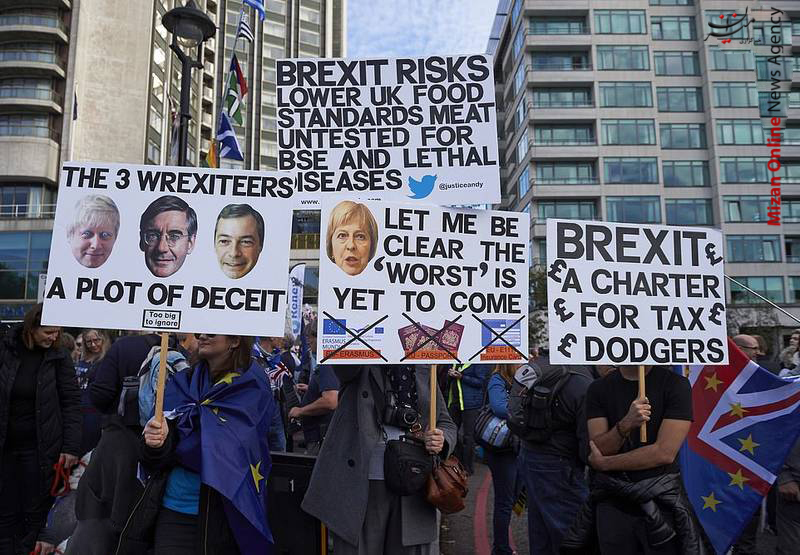 BREXIT RISKS
LOWER UK FOOD
STANDARDS MEAT
UNTESTED FOR
BSE AND LETHAL
DISEASES
@justiceandy
www.
THE 3 WREXITEERS
A PLOT OF DECEIT
Too big
to ignore
LET ME BE
CLEAR THE
'WORST' IS
YET TO COME
ERASMUS
MUNDUS
EU-ERASMUS
EU-PASSPORT
BREXIT£
£A CHARTER
£ FOR TAX£
£ DODGERS
Mizan Online News Agency